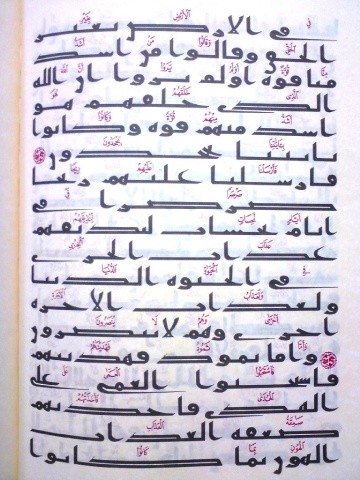 في الارض بغير
الحق وقالوا من اشد
منا قوه اولم يروا ان الله
الذي خلقهم هو
اشد منهم قوه وكانوا
باييتنا يجحدون
فارسلنا عليهم ريحا
صرصرا في
ايام نحسات لنذيقهم
عذاب الخزي
في الحيوه الدنيا
ولعذاب الاخره
اخزى وهم لا ينصرون
واما ثمود فهدينهم
فاستحبوا العمى على
الهدى فاخذتهم
صعقه العذاب
الهون بما كانوا